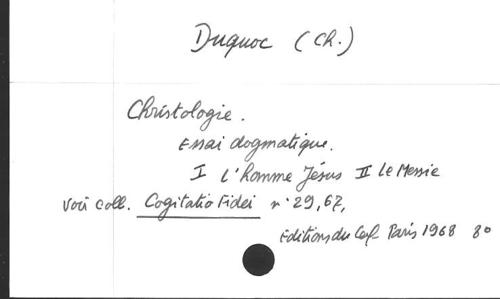 Duquoc (Ch.)
Christologie.
Essai dogmatique.
I L'homme Jésus II Le Messie
Voir coll. Cogitatio Fidei n° 29, 67,
Editions du Cerf Paris 1968 8°